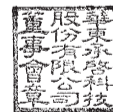 華東承啓科技
股份有限公司
董事會章